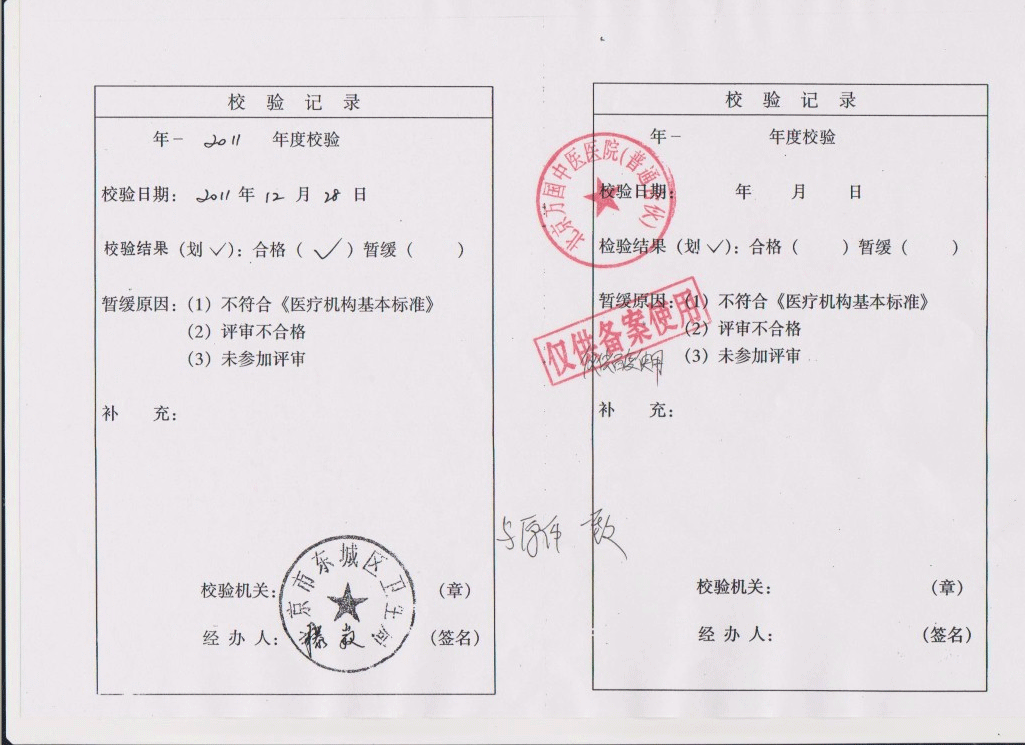 校验记录
年－ 2011 年度校验
校验日期： 2011 年 12 月 28 日
校验结果（划✓）：合格（ ✓ ）暂缓（ ）
暂缓原因：（1）不符合《医疗机构基本标准》
（2）评审不合格
（3）未参加评审
补 充：
校验机关： （章）
经办人： （签名）
京市东城区卫生局
校验记录
年－ 年度校验
校验日期： 年 月 日
检验结果（划✓）：合格（ ）暂缓（ ）
暂缓原因：（1）不符合《医疗机构基本标准》
（2）评审不合格
（3）未参加评审
补 充：
校验机关： （章）
经办人： （签名）
北京方国中医医院（普通合伙）
仅供备案使用
仅供备案使用
与原件一致